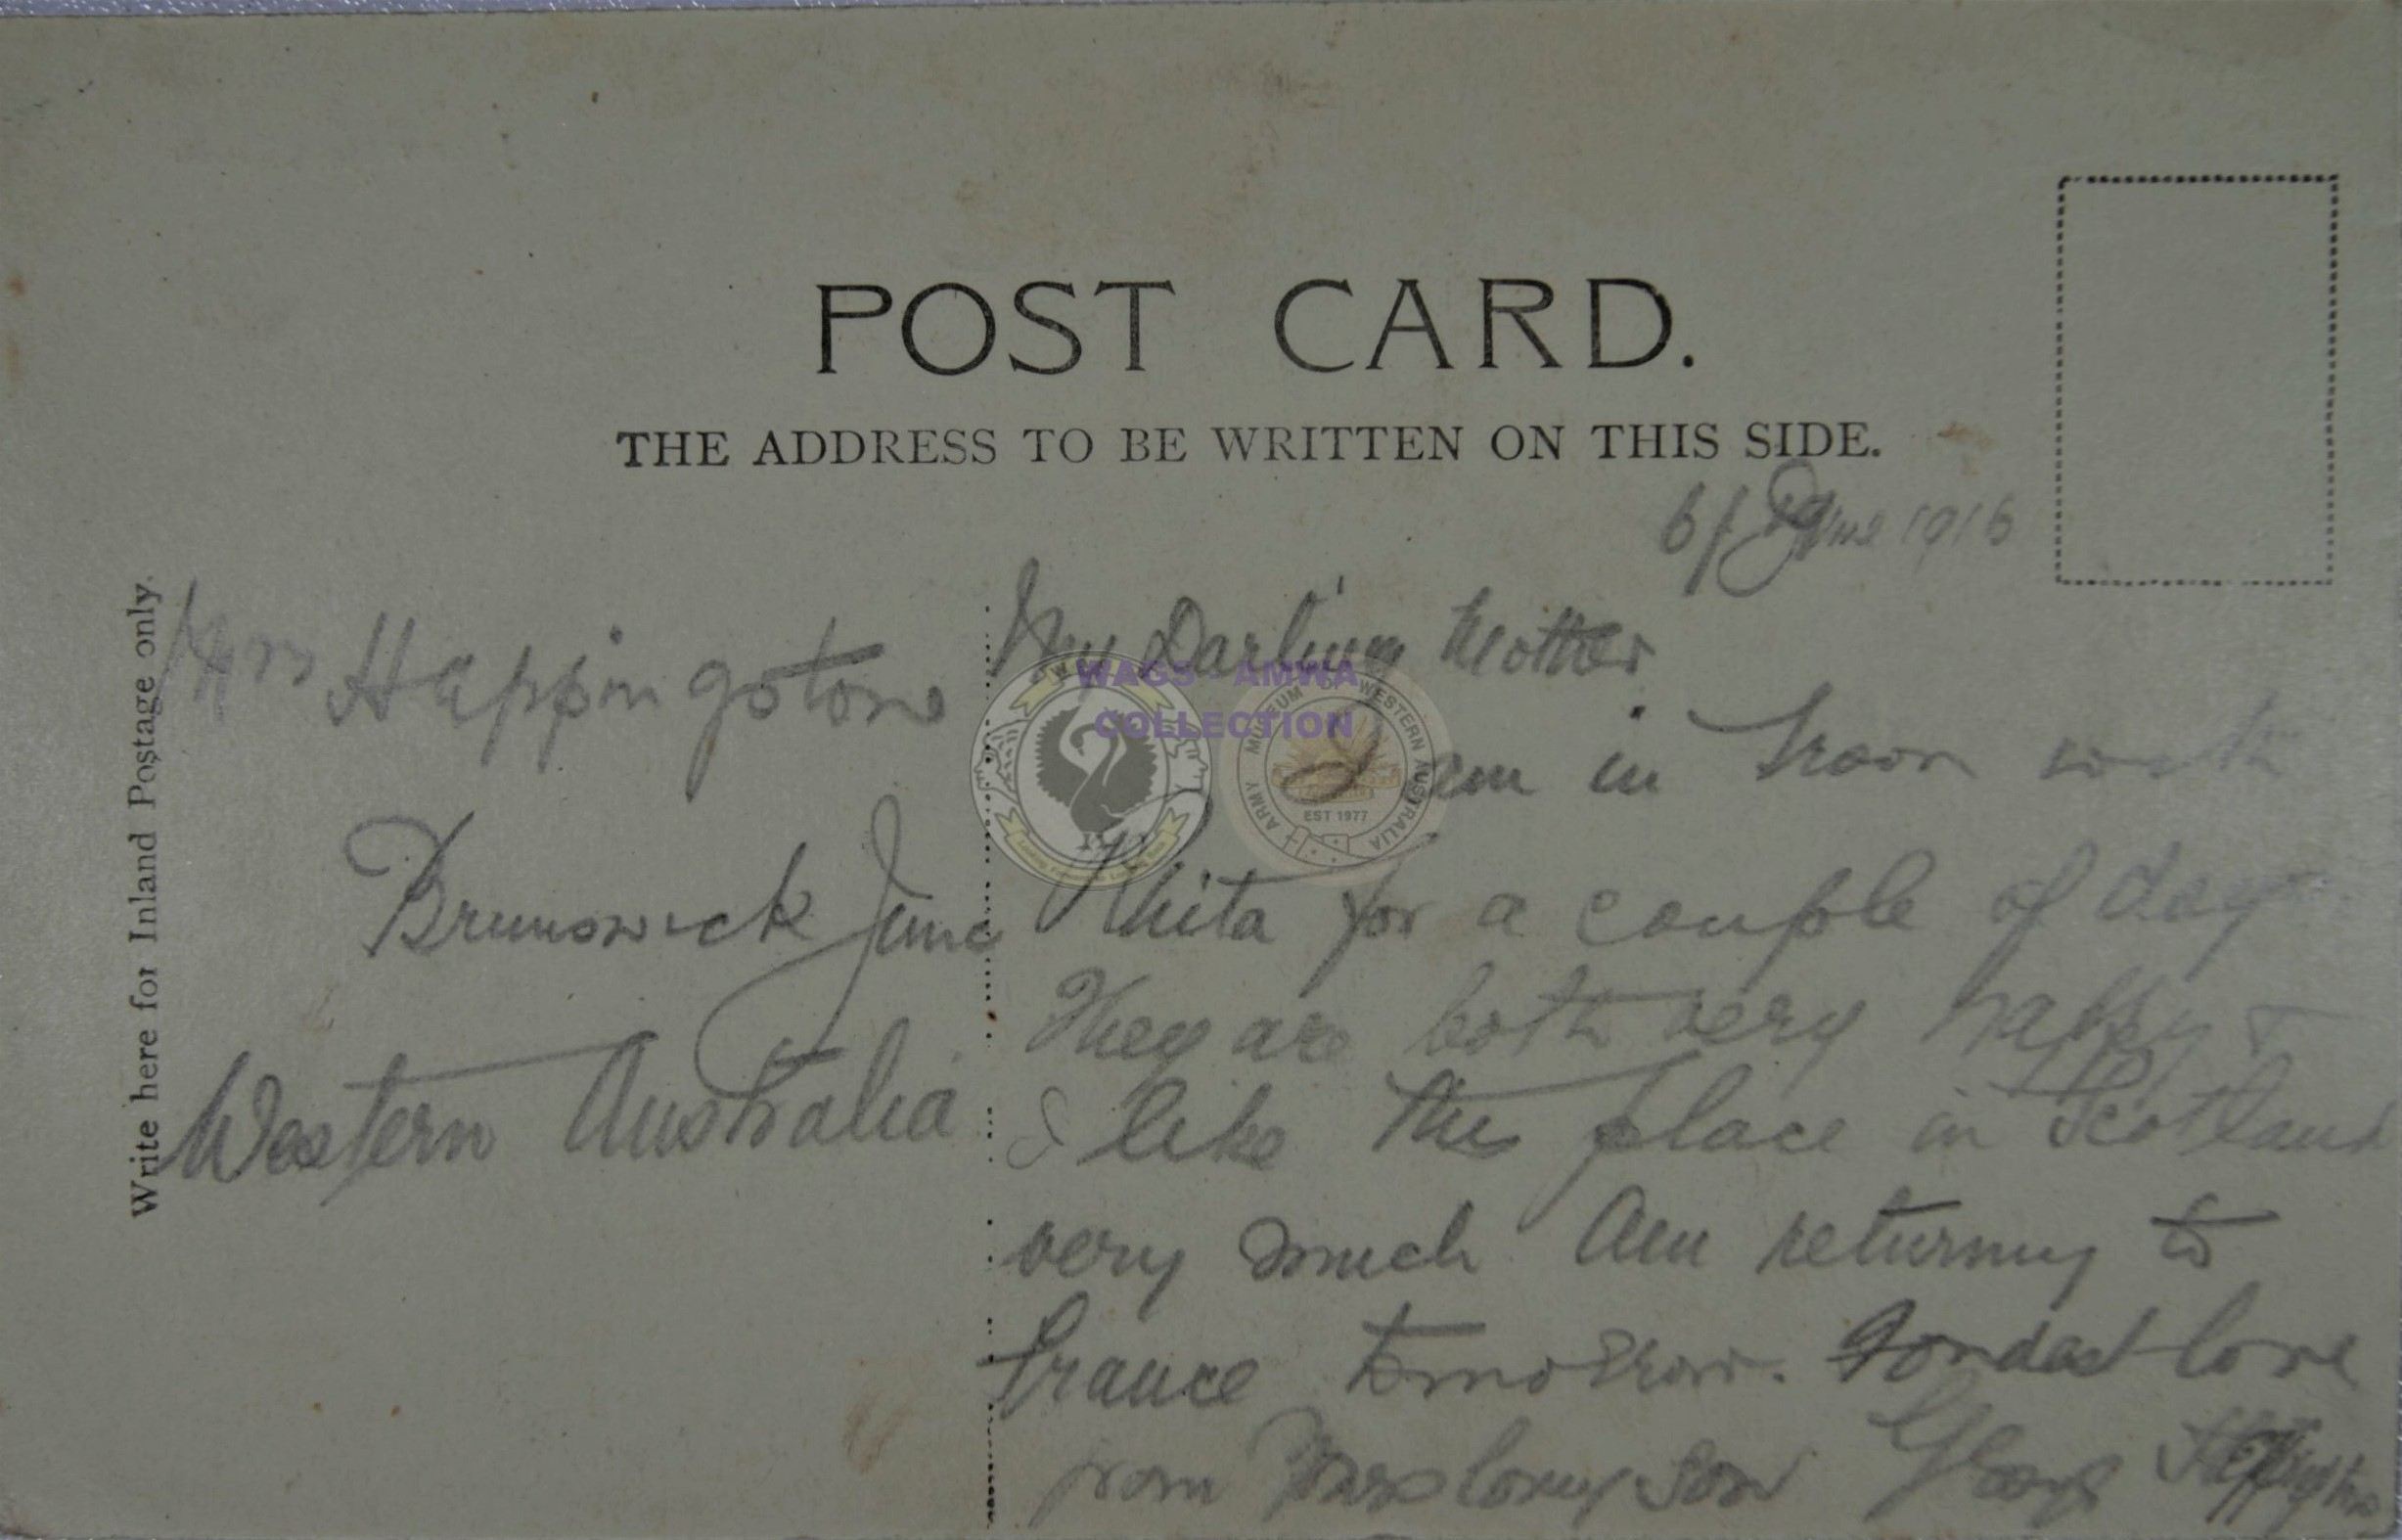 POST CARD.
THE ADDRESS TO BE WRITTEN ON THIS SIDE.
Write here for Inland Postage only.
Mrs Happingstone
Brunswick Junc
Western Australia
6/ June 1916
My Darling Mother
I am in Troon with
Rhita for a couple of days
They are both very happy &
I like this place in Scotland
very much Am returning to
France tomorrow. Fondest love
from Your loving son George
WAGS - AMWA
COLLECTION
ARMY MUSEUM OF WESTERN AUSTRALIA
EST 1977